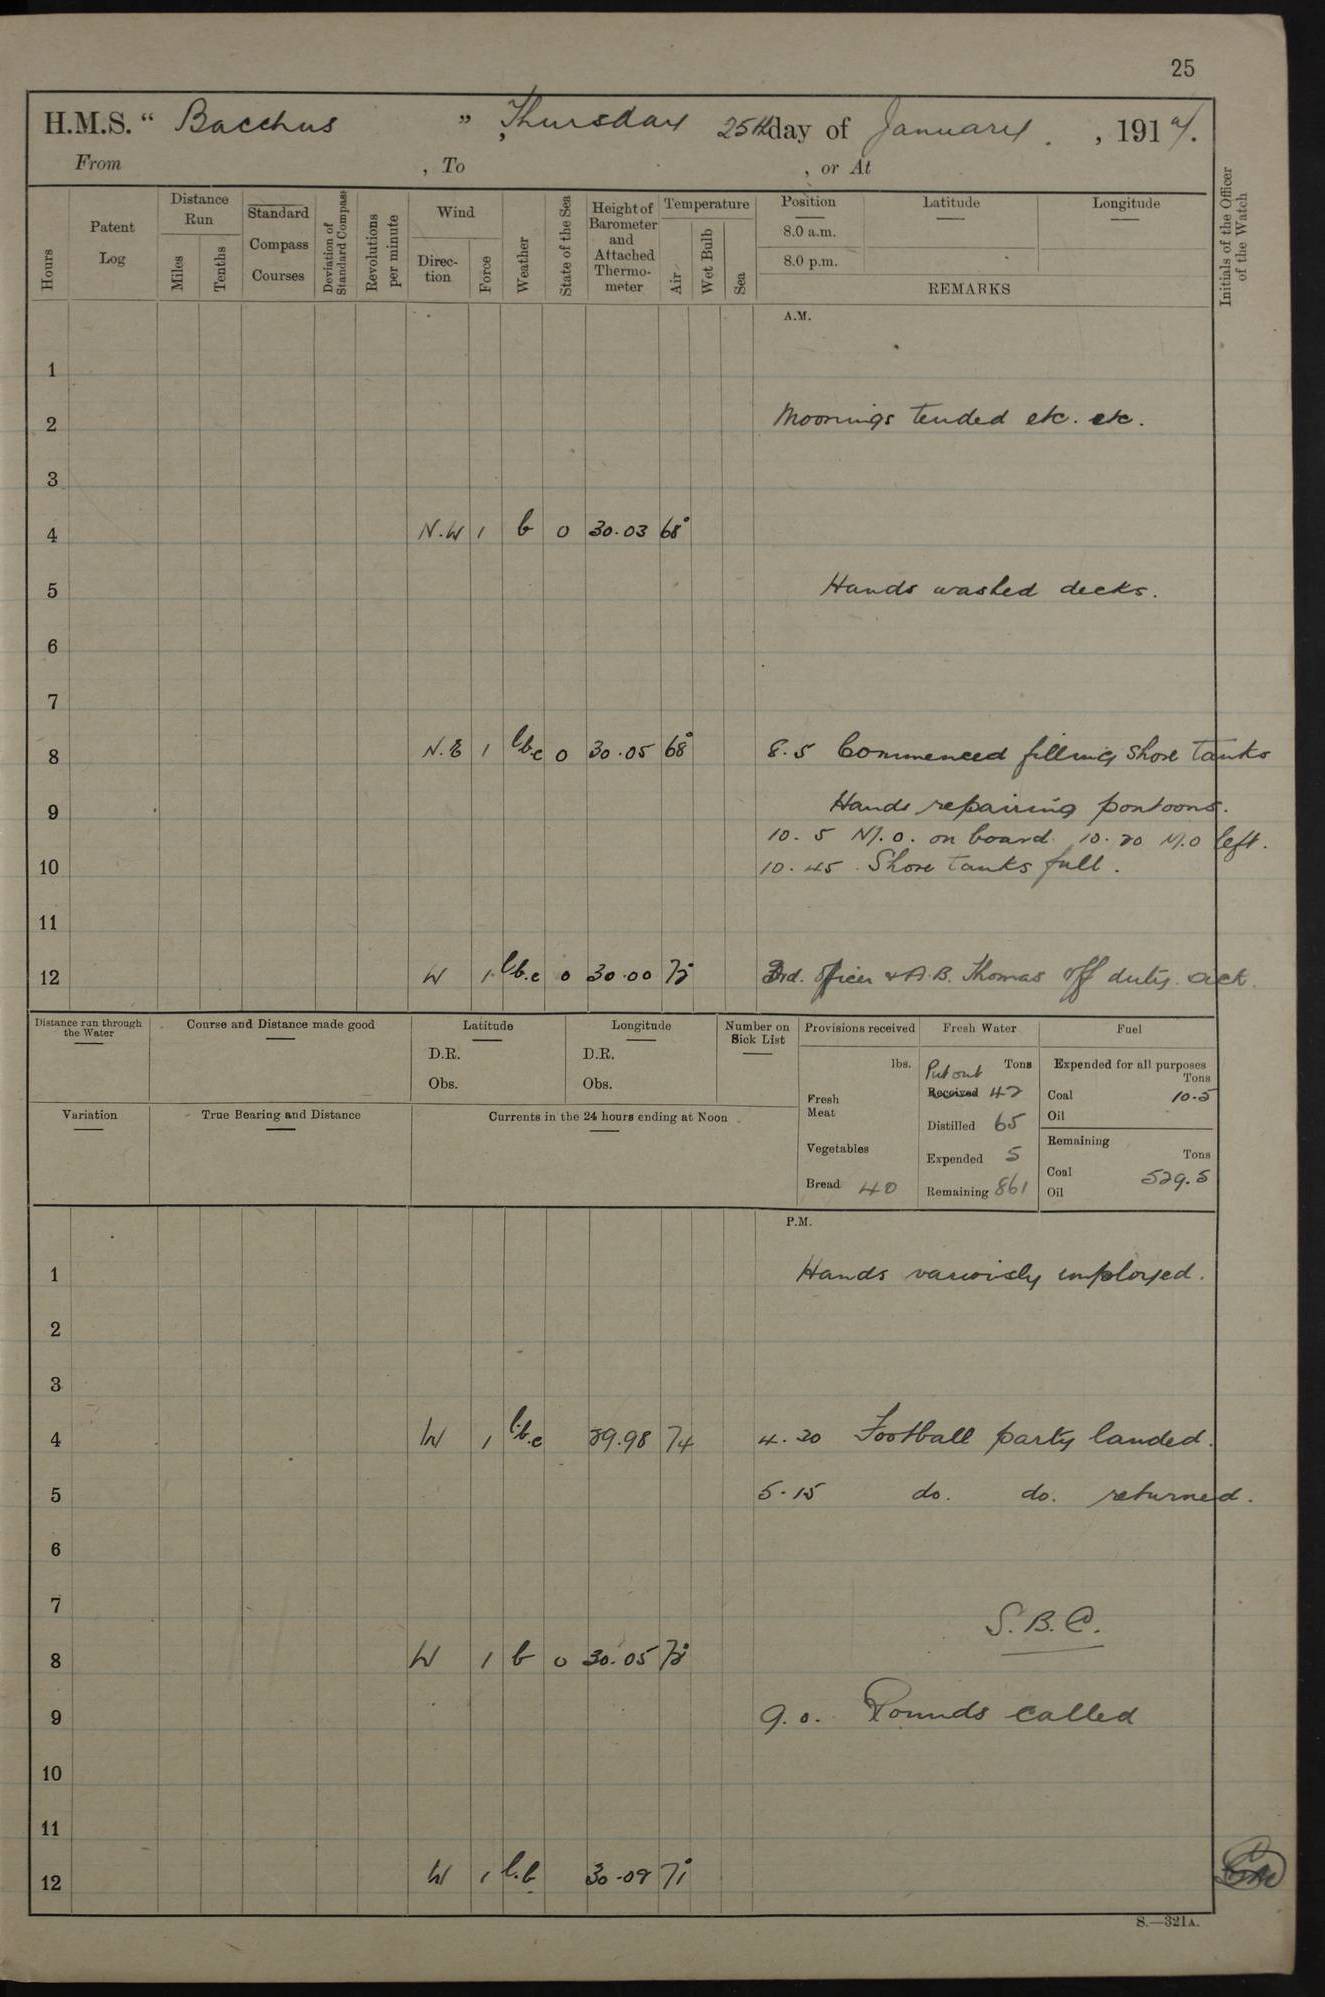 25
H.M.S. “ Bacchus ” , Thursday 25th day of January , 191
From , To , or At
Hours
Patent Log
Distance Run
Miles
Tenths
Standard Compass Courses
Deviation of Standard Compass
Revolutions per minute
Wind
Direction
Force
Weather
State of the Sea
Height of Barometer and Attached Thermometer
Temperature
Air
Wet Bulb
Sea
Position
8.0 a.m.
8.0 p.m.
Latitude
Longitude
REMARKS
Initials of the Officer of the Watch
A.M.
1
2 Moorings tended etc. etc.
3
4 N.W 1 b 0 30.03 68°
5 Hands washed decks.
6
7
8 N.E 1 b.c 0 30.05 68° 8.5 Commenced filling shore tanks
9 Hands repairing pontoons.
10.5 M.O. on board. 10.20 M.O left.
10 10.45 Shore tanks full.
11
12 W 1 b.c 0 30.00 72° 3rd. Officer & A.B. Thomas off duty. sick.
Distance run through the Water
Course and Distance made good
Latitude
D.R.
Obs.
Longitude
D.R.
Obs.
Number on Sick List
Provisions received
lbs.
Fresh Meat
Vegetables
Bread 40
Fresh Water
Put out Tons
Received 42
Distilled 65
Expended 5
Remaining 861
Fuel
Expended for all purposes
Tons
Coal 10.5
Oil
Remaining
Tons
Coal 529.5
Oil
Variation
True Bearing and Distance
Currents in the 24 hours ending at Noon
P.M.
1 Hands variously employed.
2
3
4 W 1 b.c 29.98 74 4.20 Football party landed.
5 5.15 do. do. returned.
6
7
S.B.C.
8 W 1 b 0 30.05 72°
9 9.0. Rounds called
10
11
12 W 1 b 30.02 71°
S.—321A.